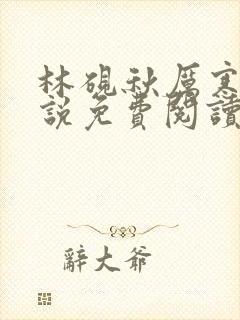 林硯秋厲寒
說免費閱讀
辭大爺